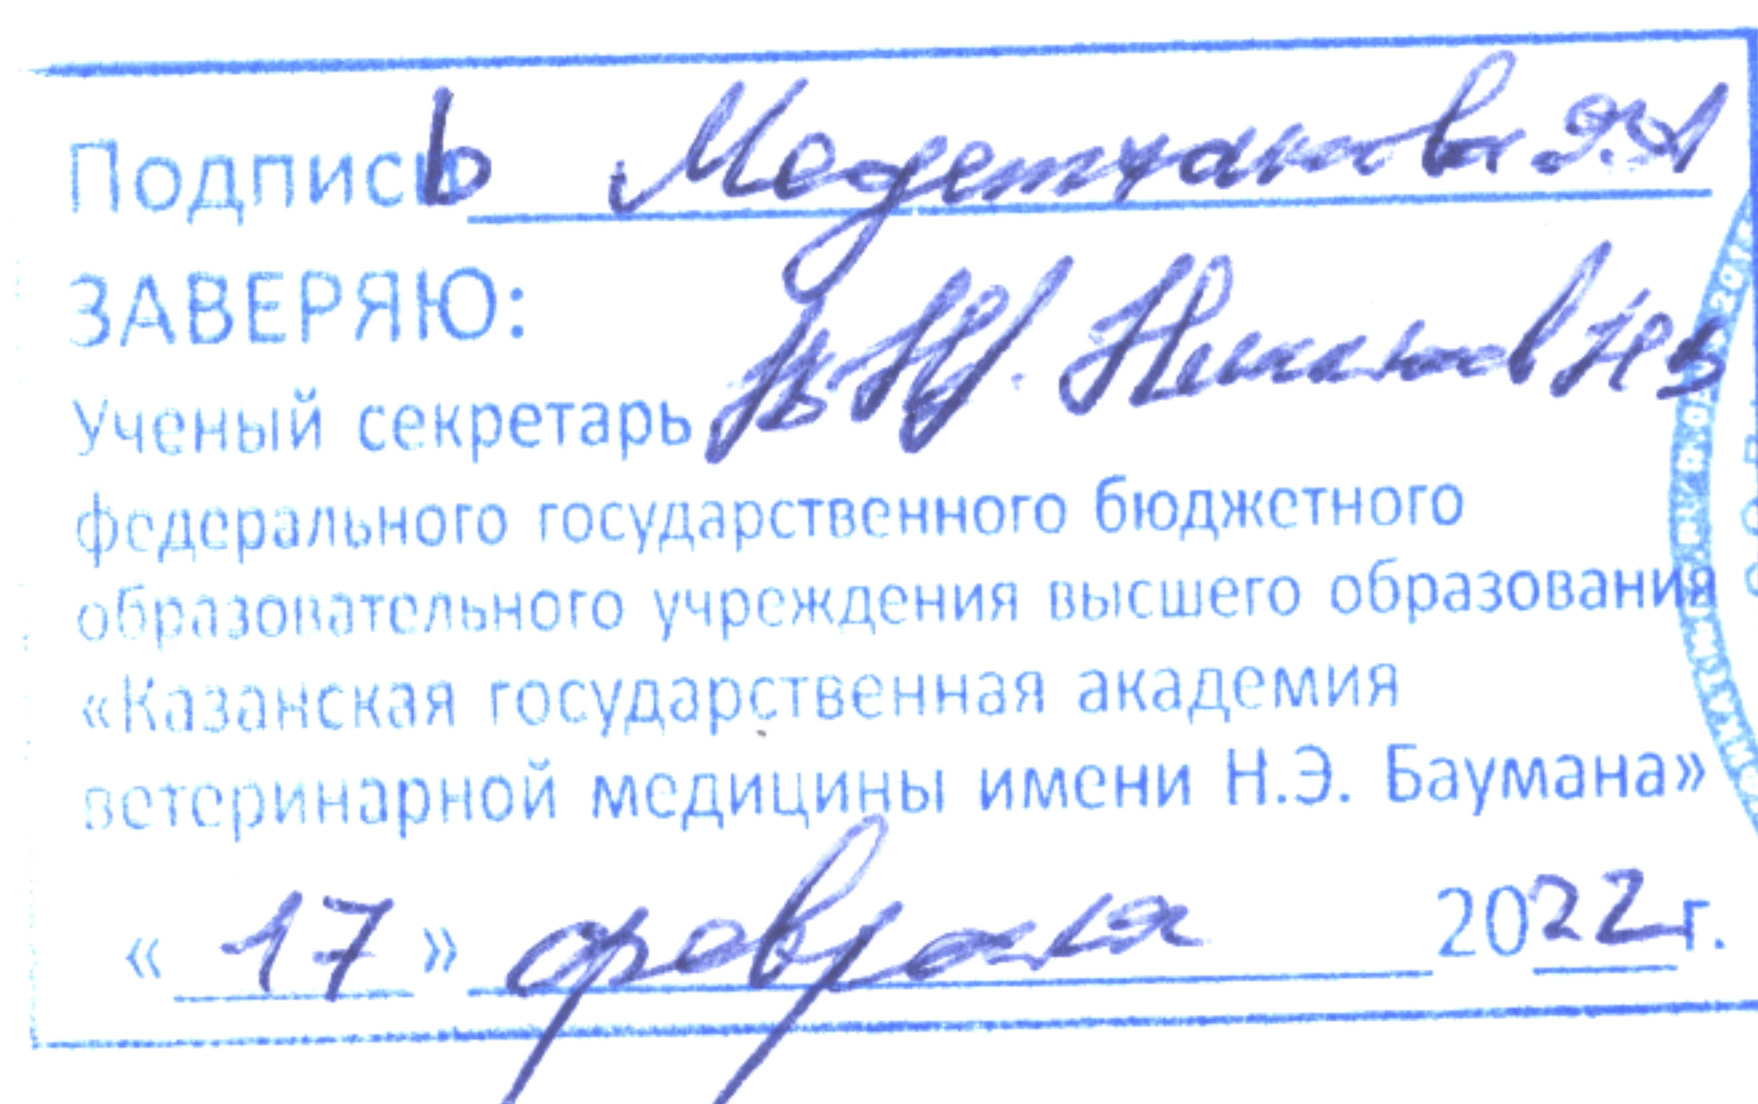 Подпись Медетханова Ф.А
ЗАВЕРЯЮ:
Ученый секретарь
федерального государственного бюджетного
образовательного учреждения высшего образования
«Казанская государственная академия
ветеринарной медицины имени Н.Э. Баумана»
«17» февраля 2022 г.